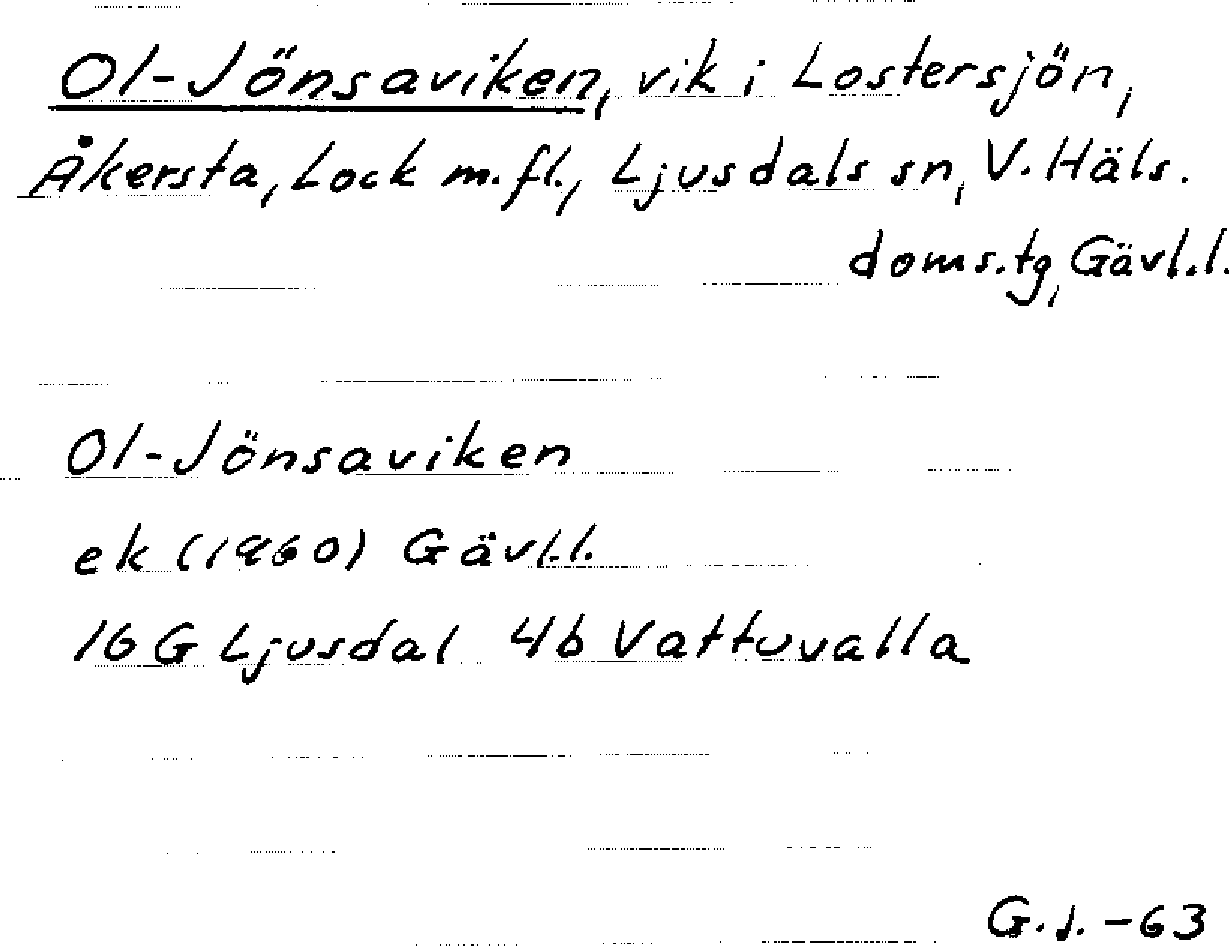 Ol-Jönsaviken, vik i Lostersjön,
Åkersta, Lock m.fl., Ljusdals sn, V. Häls.
doms.tg, Gävl.l.
Ol-Jönsaviken
ek (1960) Gävl.l.
16 G Ljusdal 4b Vattuvalla
G.J. -63